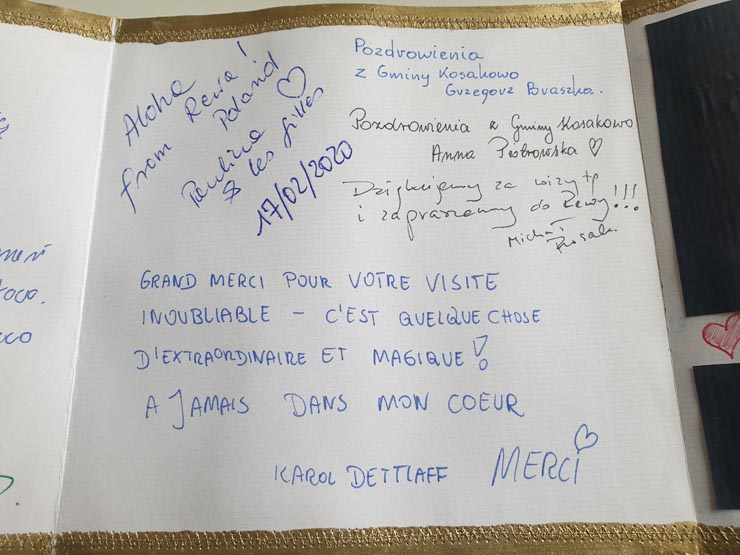 Aloha
from Rewa!
Poland ♡
Paulina
& les filles
17/02/2020
Pozdrowienia
z Gminy Kosakowo
Grzegorz Braszka.
Pozdrowienia z Gminy Kosakowo
Anna Piotrowska ♡
Dziękujemy za wizytę
i zapraszamy do Rewy!!!
Michał
GRAND MERCI POUR VOTRE VISITE
INOUBLIABLE – C'EST QUELQUE CHOSE
D'EXTRAORDINAIRE ET MAGIQUE!
A JAMAIS DANS MON COEUR
KAROL DETTLAFF MERCI